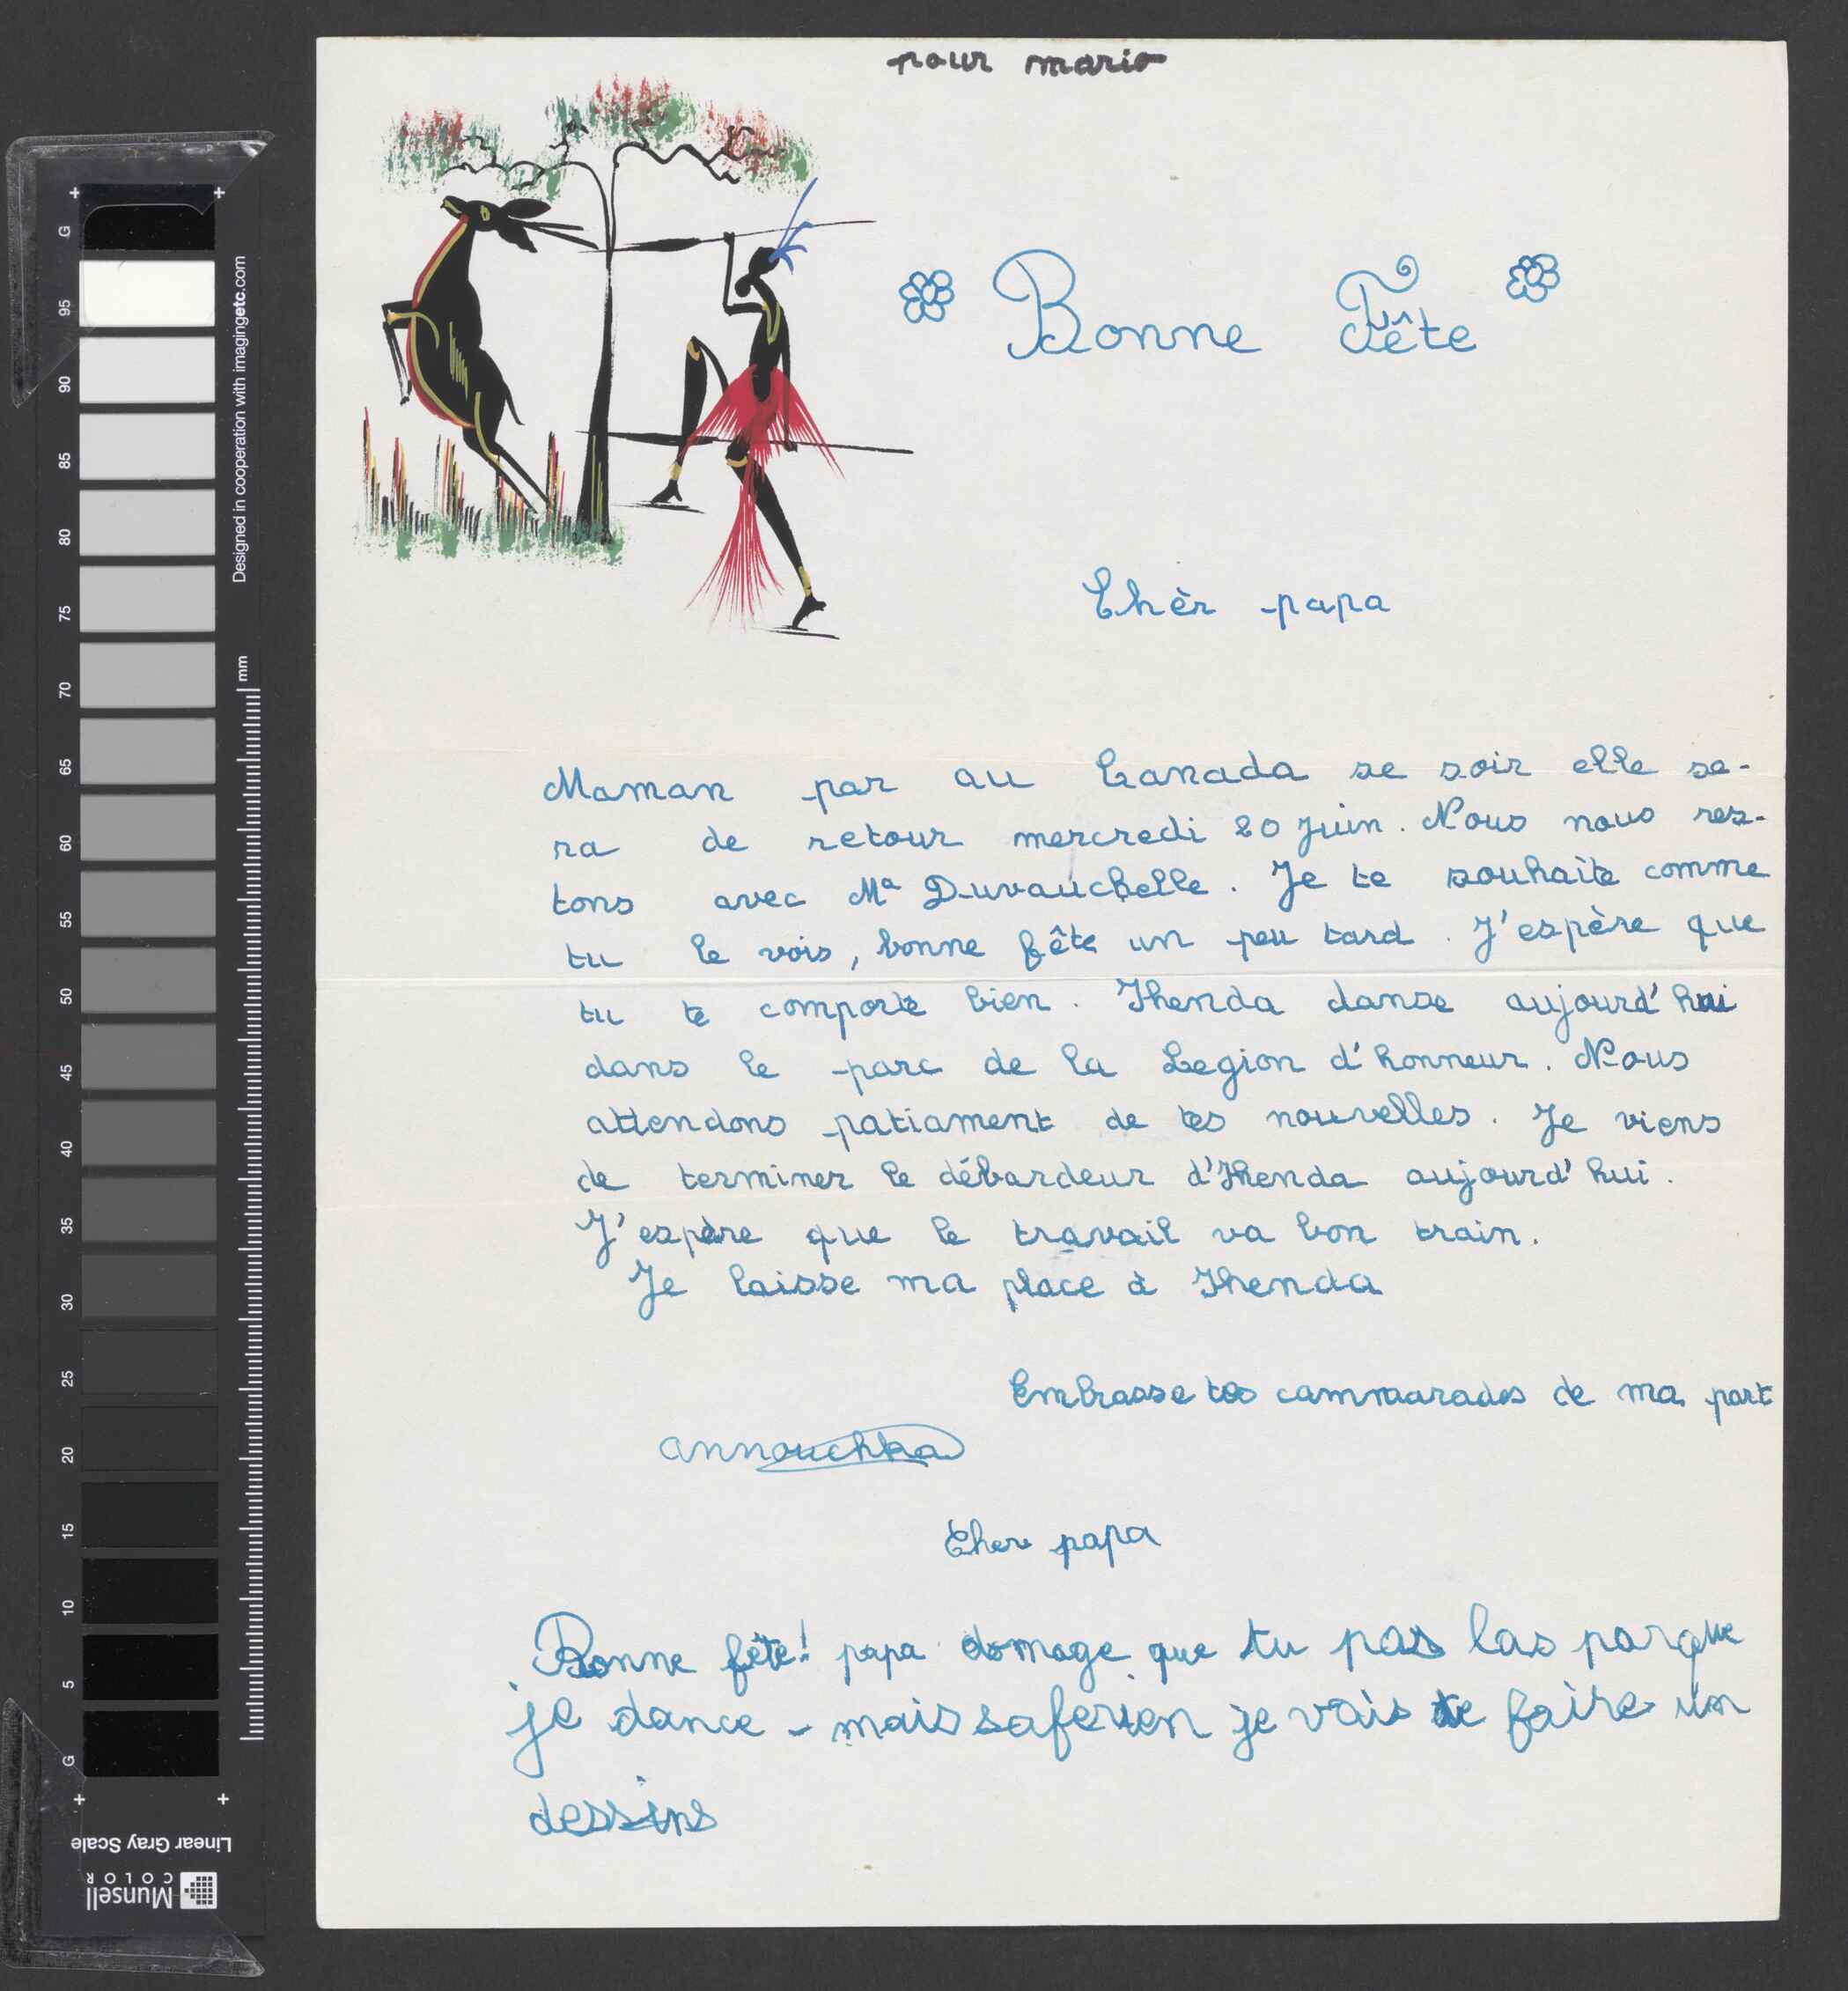 pour mario
Bonne Fête
Chèr papa
Maman par au Canada se soir elle se-
ra de retour mercredi 20 Juin. Nous nous res-
tons avec Mª Duvauchelle. Je te souhaite comme
tu le vois, bonne fête un peu tard. J'espère que
tu te comporte bien. Ihenda danse aujourd'hui
dans le parc de la Legion d'honneur. Nous
attendons patiament de tes nouvelles. Je viens
de terminer le débardeur d'Ihenda aujourd'hui.
J'espère que le travail va bon train.
Je laisse ma place à Ihenda
Embrasse tes cammarades de ma part
annouchka
Cher papa
Bonne fête! papa domage que tu pas las parque
je dance - mais saferien je vais te faire un
dessins
+ +
G 95 90 85 80 75 70 65 60 55 50 45 40 35 30 25 20 15 10 5 G
+ +
mm
Designed in cooperation with imagingetc.com
Linear Gray Scale
Munsell
COLOR